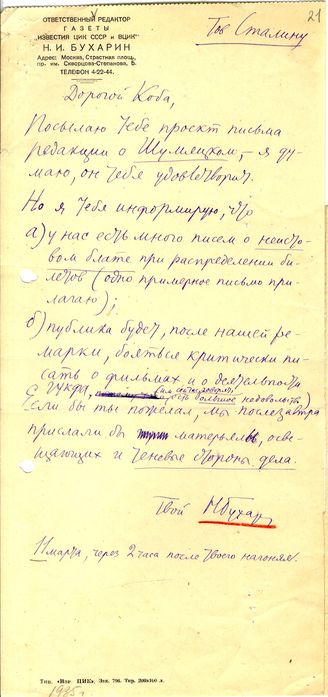 ОТВЕТСТВЕННЫЙ РЕДАКТОР
ГАЗЕТЫ
"ИЗВЕСТИЯ ЦИК СССР и ВЦИК"
Н. И. БУХАРИН
Адрес: Москва, Страстная площ.,
пр. им. Скворцова-Степанова, 5.
ТЕЛЕФОН 4-22-44.
21
Тов Сталину
Дорогой Коба,
Посылаю тебе проект письма
редакции о Шумяцком, – я ду-
маю, он тебя удовлетворит.
Но я тебя информирую, что
а) у нас есть много писем о неисто-
вом блате при распределении би-
летов (одно примерное письмо при-
лагаю);
б) публика будет, после нашей ре-
марки, бояться критически пи-
сать о фильмах и о деятельности
ГУКФа,
есть большое недовольство)
Если бы ты пожелал, мы послезавтра
прислали бы материалы, осве-
щающих и теневые стороны дела.
Твой НБухар
11 марта, через 2 часа после твоего нагоняя.
1935 г.
Тип. "Изв ЦИК", Зак. 796. Тир. 200х100 л.